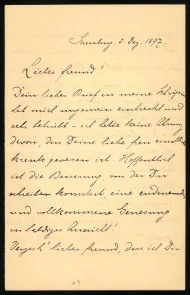 5. Dez. 1897.
Lieber Freund!
Dein lieber Brief an meine
hat mich ungemein und
sehr betrübt – ich hatte keine Ahnung
davon, dass Deine liebe Frau
krank gewesen ist. Hoffentlich
ist die Besserung von der Du
schreibst eine andauernde
und vollkommene Genesung
in baldiger Aussicht!
Verzeih' lieber Freund, dass ich Dir